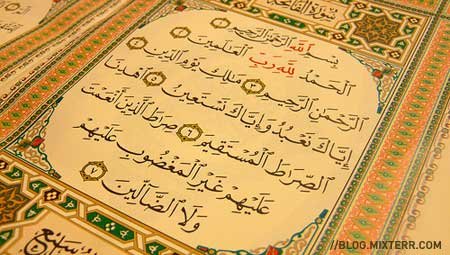 سورة الفاتحة
بِسْمِ ٱللَّهِ ٱلرَّحْمَٰنِ ٱلرَّحِيمِ ١
ٱلْحَمْدُ لِلَّهِ رَبِّ ٱلْعَٰلَمِينَ ٢
ٱلرَّحْمَٰنِ ٱلرَّحِيمِ ٣ مَٰلِكِ يَوْمِ ٱلدِّينِ ٤
إِيَّاكَ نَعْبُدُ وَإِيَّاكَ نَسْتَعِينُ ٥ ٱهْدِنَا
ٱلصِّرَٰطَ ٱلْمُسْتَقِيمَ ٦ صِرَٰطَ ٱلَّذِينَ أَنْعَمْتَ
عَلَيْهِمْ غَيْرِ ٱلْمَغْضُوبِ عَلَيْهِمْ
وَلَا ٱلضَّآلِّينَ ٧
//BLOG.MIXTERR.COM